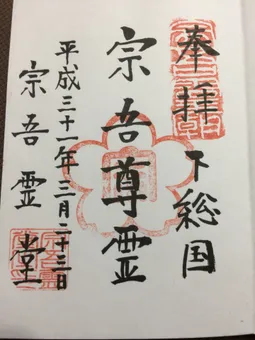 奉拝 下総国
宗吾尊霊
平成三十一年三月二十三日
宗吾霊堂